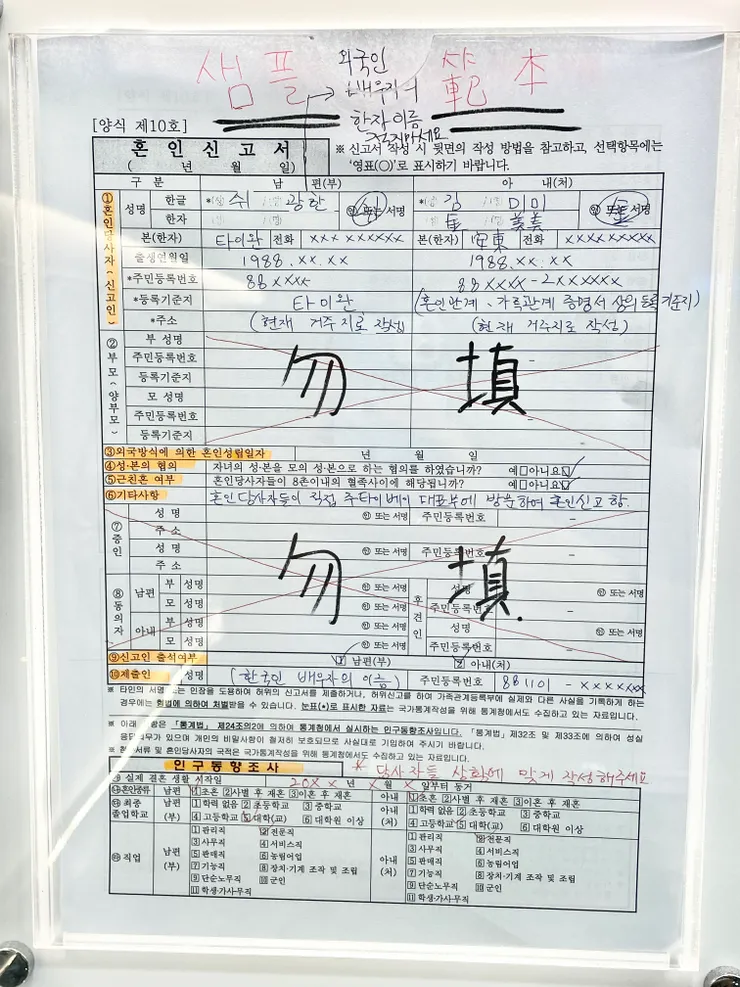 샘플 외국인 範本
배우자의
한자 이름
적지마세요
[양식 제10호]
혼 인 신 고 서
( 년 월 일)
※ 신고서 작성 시 뒷면의 작성 방법을 참고하고, 선택항목에는
‘영표(○)’로 표시하기 바랍니다.
구 분 남 편(부) 아 내(처)
①혼인당사자(신고인)
성명 한글 *(성) 쉬 /(명) 광한 ㊞ 또는 서명 *(성) 김 /(명) 미미 ㊞ 또는 서명
한자 (성) /(명) (성) 金 /(명) 美美
본(한자) 타이완 전화 xxx xxxxxx 본(한자) 安東 전화 xxxxxxxxx
출생연월일 1988.xx.xx 1988.xx.xx
*주민등록번호 88xxxx 88xxxx-2xxxxxx
*등록기준지 타이완 (혼인관계, 가족관계 증명서 상의 등록기준지)
*주소 (현재 거주지로 작성) (현재 거주지로 작성)
②부모(양부모)
부 성명
주민등록번호 -
등록기준지
모 성명
주민등록번호 -
등록기준지
勿 填
③외국방식에 의한 혼인성립일자 년 월 일
④성·본의 협의 자녀의 성·본을 모의 성·본으로 하는 협의를 하였습니까? 예□아니요☑
⑤근친혼 여부 혼인당사자들이 8촌이내의 혈족사이에 해당됩니까? 예□아니요☑
⑥기타사항 혼인당사자들이 직접 주타이베이 대표부에 방문하여 혼인신고함.
⑦증인
성 명 ㊞ 또는 서명 주민등록번호 -
주 소
성 명 ㊞ 또는 서명 주민등록번호 -
주 소
勿 填
⑧동의자
남편 부 성명 ㊞ 또는 서명 후견인 성명 ㊞ 또는 서명
모 성명 ㊞ 또는 서명 주민등록번호 -
아내 부 성명 ㊞ 또는 서명 성명 ㊞ 또는 서명
모 성명 ㊞ 또는 서명 주민등록번호 -
⑨신고인 출석여부 ① 남편(부) ② 아내(처)
⑩제출인 성명 (한국인 배우자의 이름) 주민등록번호 881101-xxxxxxx
※ 타인의 서명 또는 인장을 도용하여 허위의 신고서를 제출하거나, 허위신고를 하여 가족관계등록부에 실제와 다른 사실을 기록하게 하는
경우에는 형법에 의하여 처벌받을 수 있습니다. 눈표(*)로 표시한 자료는 국가통계작성을 위해 통계청에서도 수집하고 있는 자료입니다.
※ 아래 사항은 「통계법」 제24조의2에 의하여 통계청에서 실시하는 인구동향조사입니다. 「통계법」제32조 및 제33조에 의하여 성실
응답의무가 있으며 개인의 비밀사항이 철저히 보호되므로 사실대로 기입하여 주시기 바랍니다.
※ 첨부서류 및 혼인당사자의 국적은 국가통계작성을 위해 통계청에서도 수집하고 있는 자료입니다.
인구동향조사 * 당사자들 상황에 맞게 작성해주세요
⑪ 실제 결혼 생활 시작일 20xx 년 x 월 x 일부터 동거
⑫혼인종류 남편(부) ①초혼 ②사별 후 재혼 ③이혼 후 재혼 아내(처) ①초혼 ②사별 후 재혼 ③이혼 후 재혼
⑬최종졸업학교 남편(부) ①학력 없음 ②초등학교 ③중학교 아내(처) ①학력 없음 ②초등학교 ③중학교
④고등학교 ⑤대학(교) ⑥대학원 이상 ④고등학교 ⑤대학(교) ⑥대학원 이상
⑭직업 남편(부) ①관리직 ②전문직 아내(처) ①관리직 ②전문직
③사무직 ④서비스직 ③사무직 ④서비스직
⑤판매직 ⑥농림어업 ⑤판매직 ⑥농림어업
⑦기능직 ⑧장치·기계 조작 및 조립 ⑦기능직 ⑧장치·기계 조작 및 조립
⑨단순노무직 ⑩군인 ⑨단순노무직 ⑩군인
⑪학생·가사·무직 ⑪학생·가사·무직